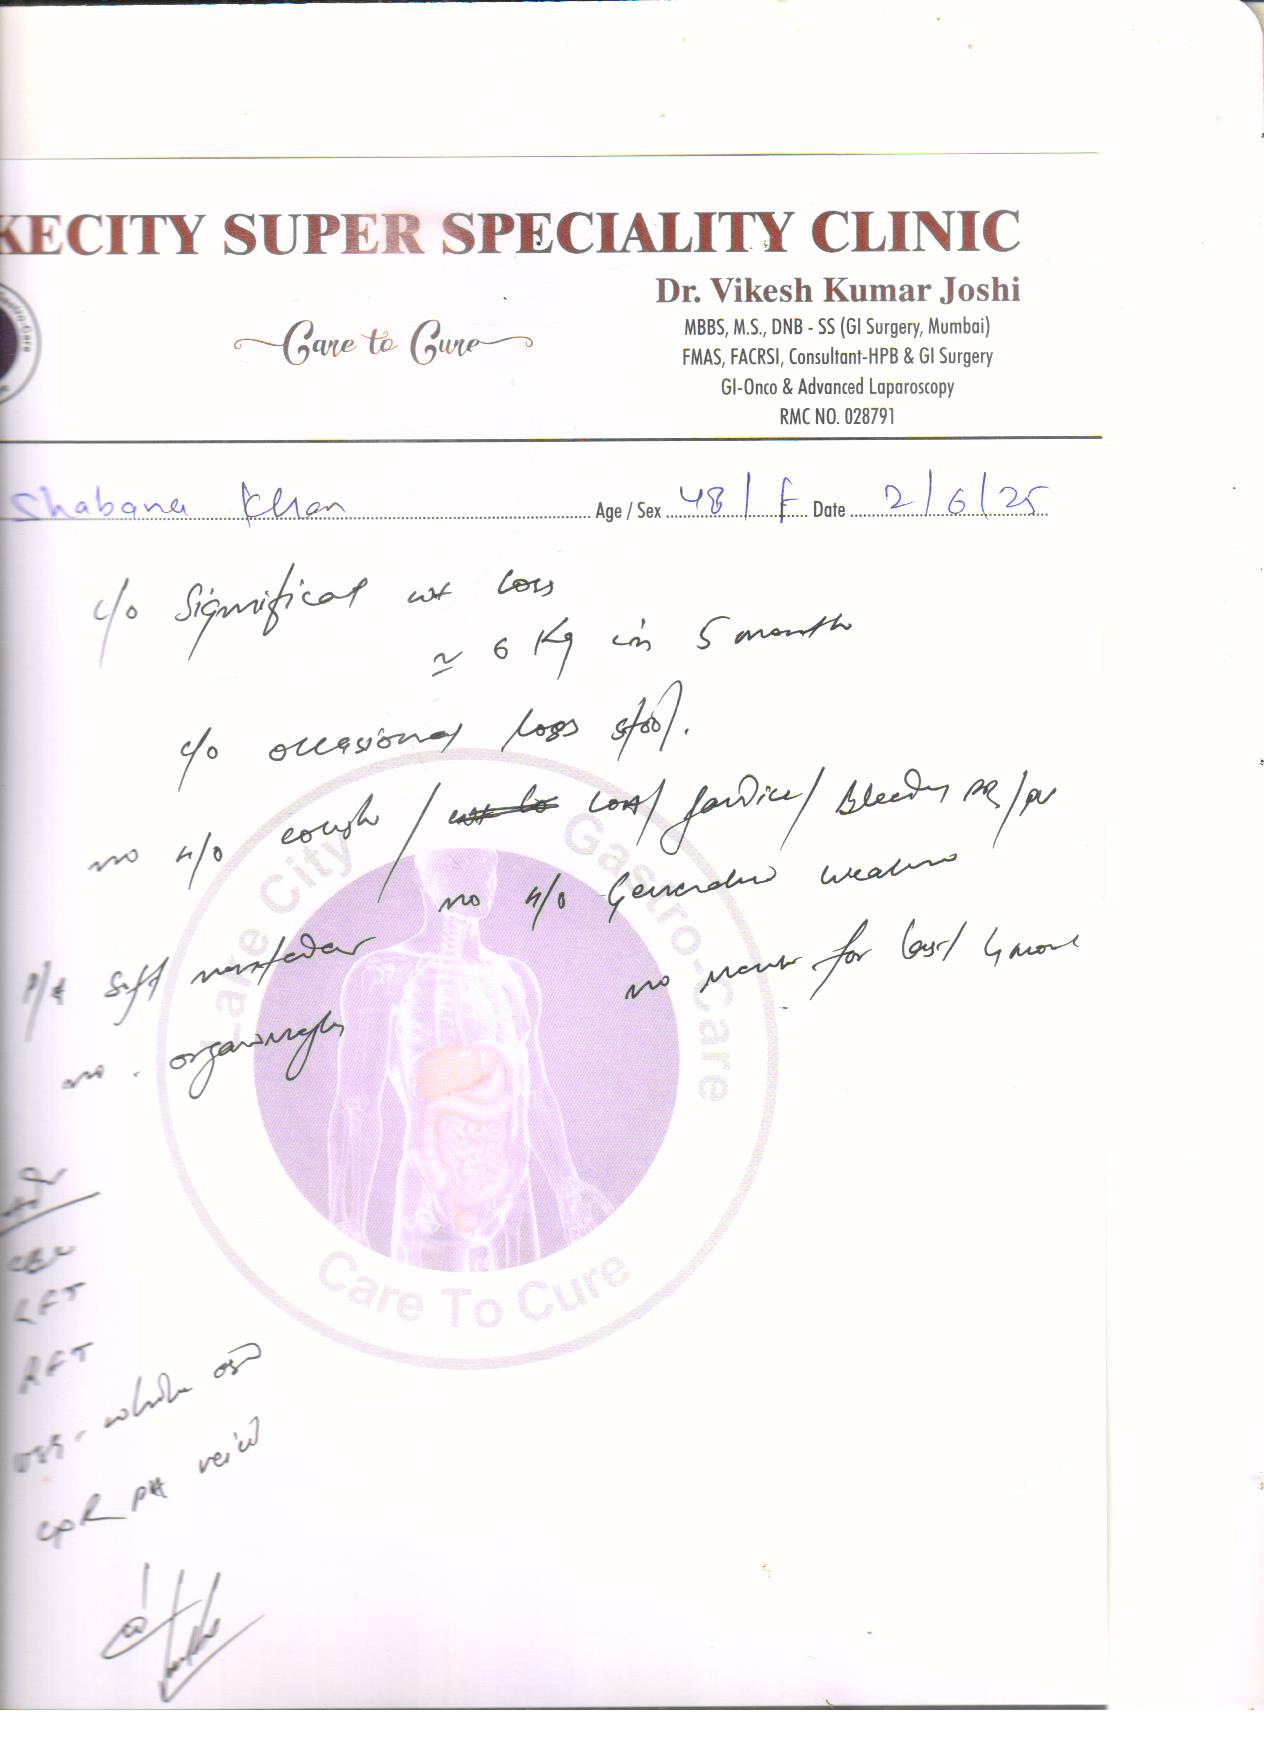 KECITY SUPER SPECIALITY CLINIC
Dr. Vikesh Kumar Joshi
Care to Cure
MBBS, M.S., DNB - SS (GI Surgery, Mumbai)
FMAS, FACRSI, Consultant-HPB & GI Surgery
GI-Onco & Advanced Laparoscopy
RMC NO. 028791
Shabana Khan Age / Sex 48 / F Date 2/6/25
c/o Significat wt loss
≃ 6 Kg in 5 month
c/o occasionaly loss stool.
no H/o cough / / Jaundice / Bleeding PR/PV
no H/o Generalised weakness
P/A Soft no for last 4 mont
no organomegaly
Adv
CBC
LFT
RFT
USG - whole abd
CXR PA view
Lake City Gastro-Care
Care To Cure